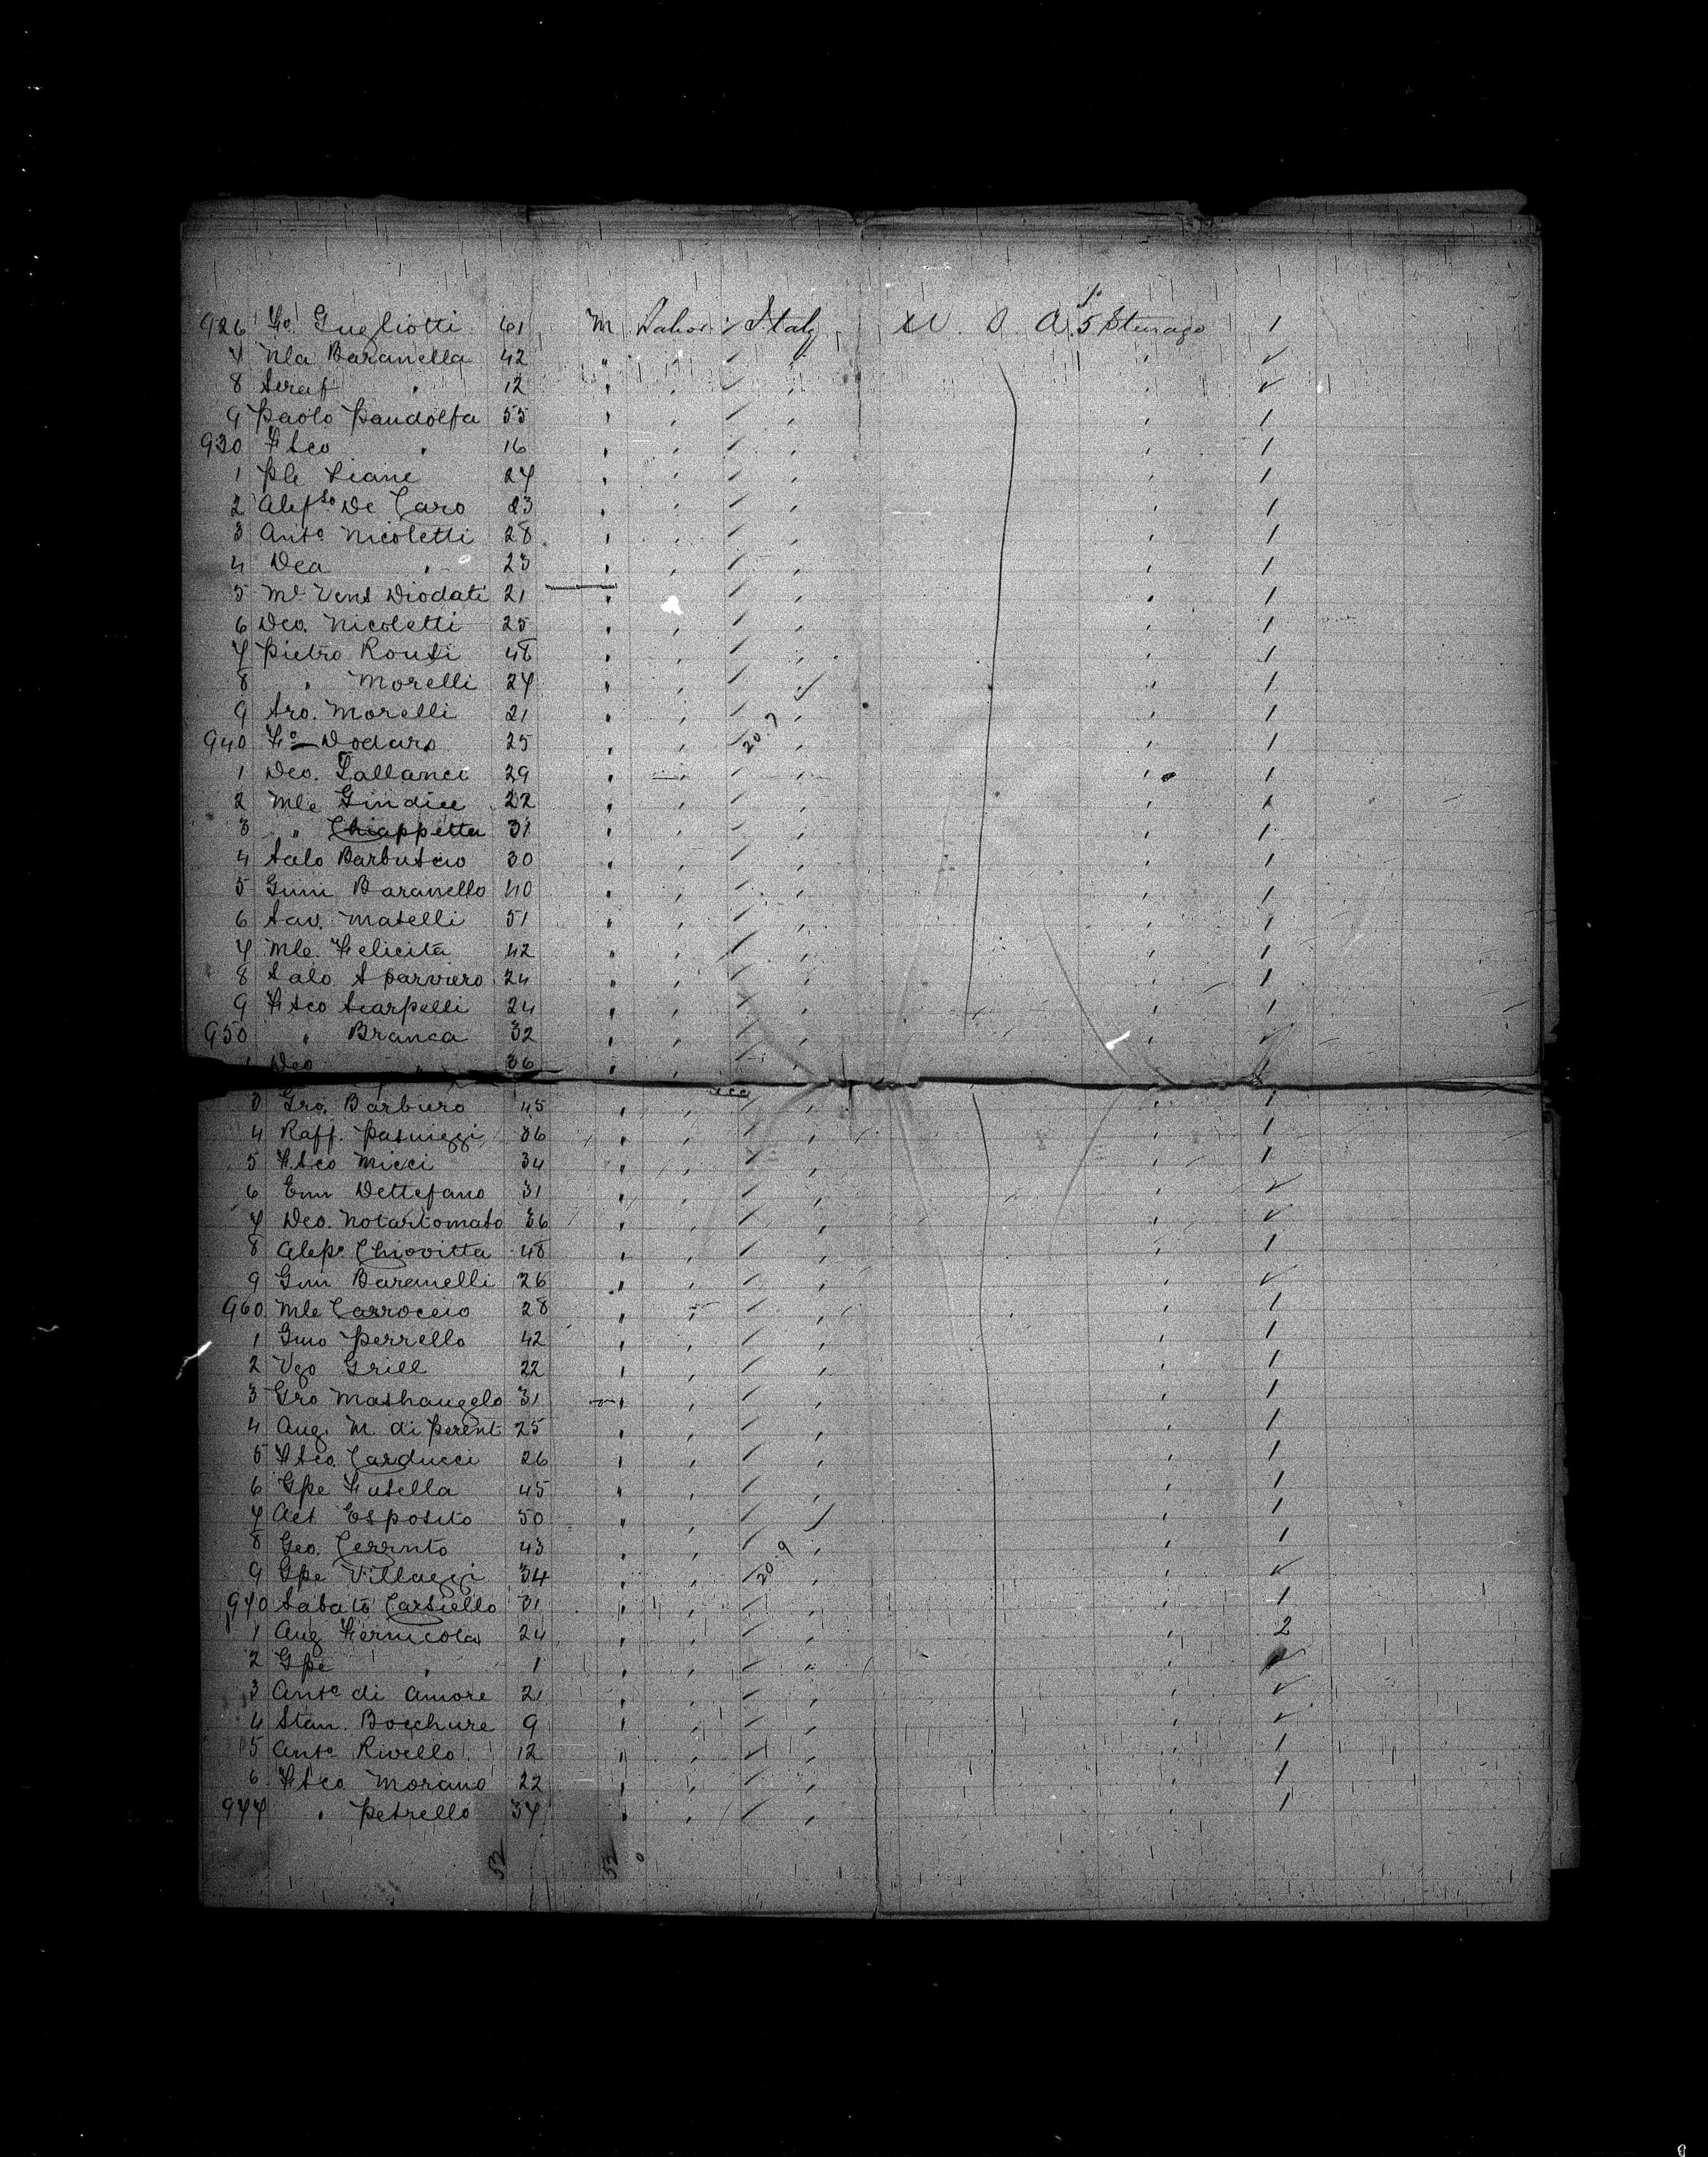 926 Fo. Gugliotti 61 M Labor Italy U. S. A. 5 Sterage 1
7 Nla Baranella 42 " ✓
8 Seraf " 12 " ✓
9 Paolo Pandolfa 55 " 1
930 Fsco " 16 " 1
1 Ple Liane 27 " 1
2 Alefso De Caro 23 " 1
3 Anto Nicoletti 28 " 1
4 Dea " 23 " 1
5 Mo Vens Diodati 21 " 1
6 Deo. Nicoletti 25 " 1
7 Pietro Ronsi 48 " 1
8 " Morelli 27 " 1
9 Sro. Morelli 21 " 1
940 Fo Dodaro 25 " 20.9 1
1 Deo. Lallanci 29 " 1
2 Mle Gindice 22 " 1
3 " Chiappetta 31 " 1
4 Salo Barbuscio 30 " 1
5 Gimi Baranello 40 " 1
6 Sav. Maselli 51 " 1
7 Mle. Felicita 42 " 1
8 Salo Sparviero 24 " 1
9 Fsco Scarpelli 24 " 1
950 " Branca 32 " ✓
1 Deo " 36 " 1
3 Gro. Barbiero 45 " 1
4 Raff. Pasuizzi 36 " 1
5 Fsco Micci 34 " 1
6 Emi Dettefano 31 " ✓
7 Deo. Notartomaso 36 " ✓
8 Alepo. Chiovitta 48 " 1
9 Gim Baranelli 26 " ✓
960 Mle Carroccio 28 " 1
1 Gmo Perrello 42 " 1
2 Vzo Grill 22 " 1
3 Gro Mashangelo 31 " 1
4 Aug. M. di Perent 25 " 1
5 Fsco. Carducci 26 " 1
6 Gpe Fusella 45 " 1
7 Act. Esposito 50 " 1
8 Geo. Cerruto 43 " 1
9 Gpe Villaggi 34 " 20.9 ✓
970 Sabato Carsiello 31 " 1
1 Aug Fernicola 24 " 2
2 Gpe " 1 "
3 Anto di Amore 21 " ✓
4 Stan. Bocchure 9 " ✓
5 Anto Rivello 12 " 1
6 Fsco Morano 22 " 1
977 " Petrello 37 " 1
52 52